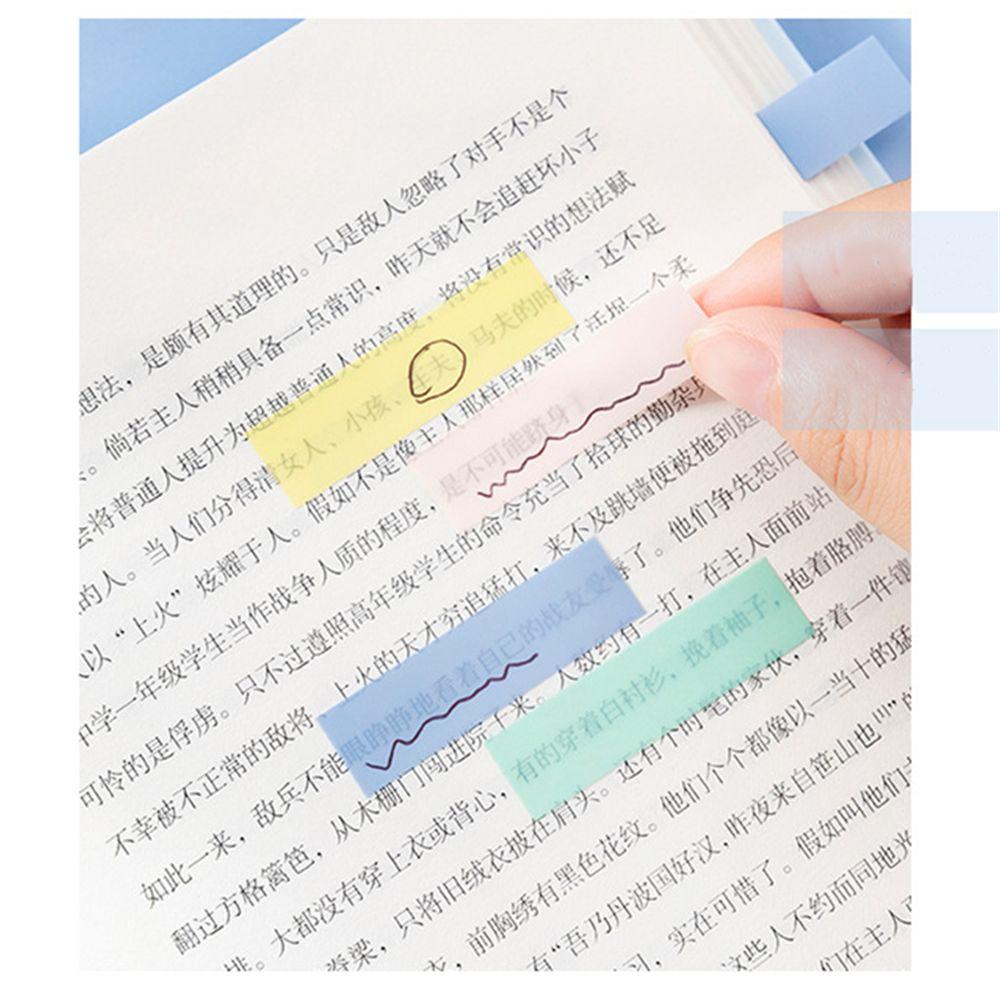 想法，是颇有其道理的。只是敌人忽略了对手不是个
倘若主人稍稍具备一点常识，昨天就不会追赶坏小子
会将普通人提升为超越普通人的高度，将没有常识的想法赋
的人。当人们分得清女人、小孩、夫、马夫的时候，还不足
以“上火”炫耀于人。假如不是像主人那样居然到了活捉一个柔
中学一年级学生当作战争人质的程度，是不可能跻身
可怜的是俘虏。只不过遵照高年级学生的命令充当了拾球的勤杂
不幸被不正常的敌将、上火的天才穷追猛打，来不及跳墙便被拖到庭
如此一来，敌兵不能眼睁睁地看着自己的战友受辱了。他们争先恐后
翻过方格篱笆，从木栅门闯进院子来。人数约有一打，在主人面前站
排。大都没有穿上衣或背心，有的穿着白衬衫，挽着袖子，抱着胳膊
脊梁，只将旧绒衣披在肩头。还有个时髦的家伙，穿着一件镶
前胸绣有黑色花纹。他们个个都像以一当十的猛
有“吾乃丹波国好汉，昨夜来自笹山也”的
习，实在可惜了。假如叫他们
这些人不约而同地光
们在主人